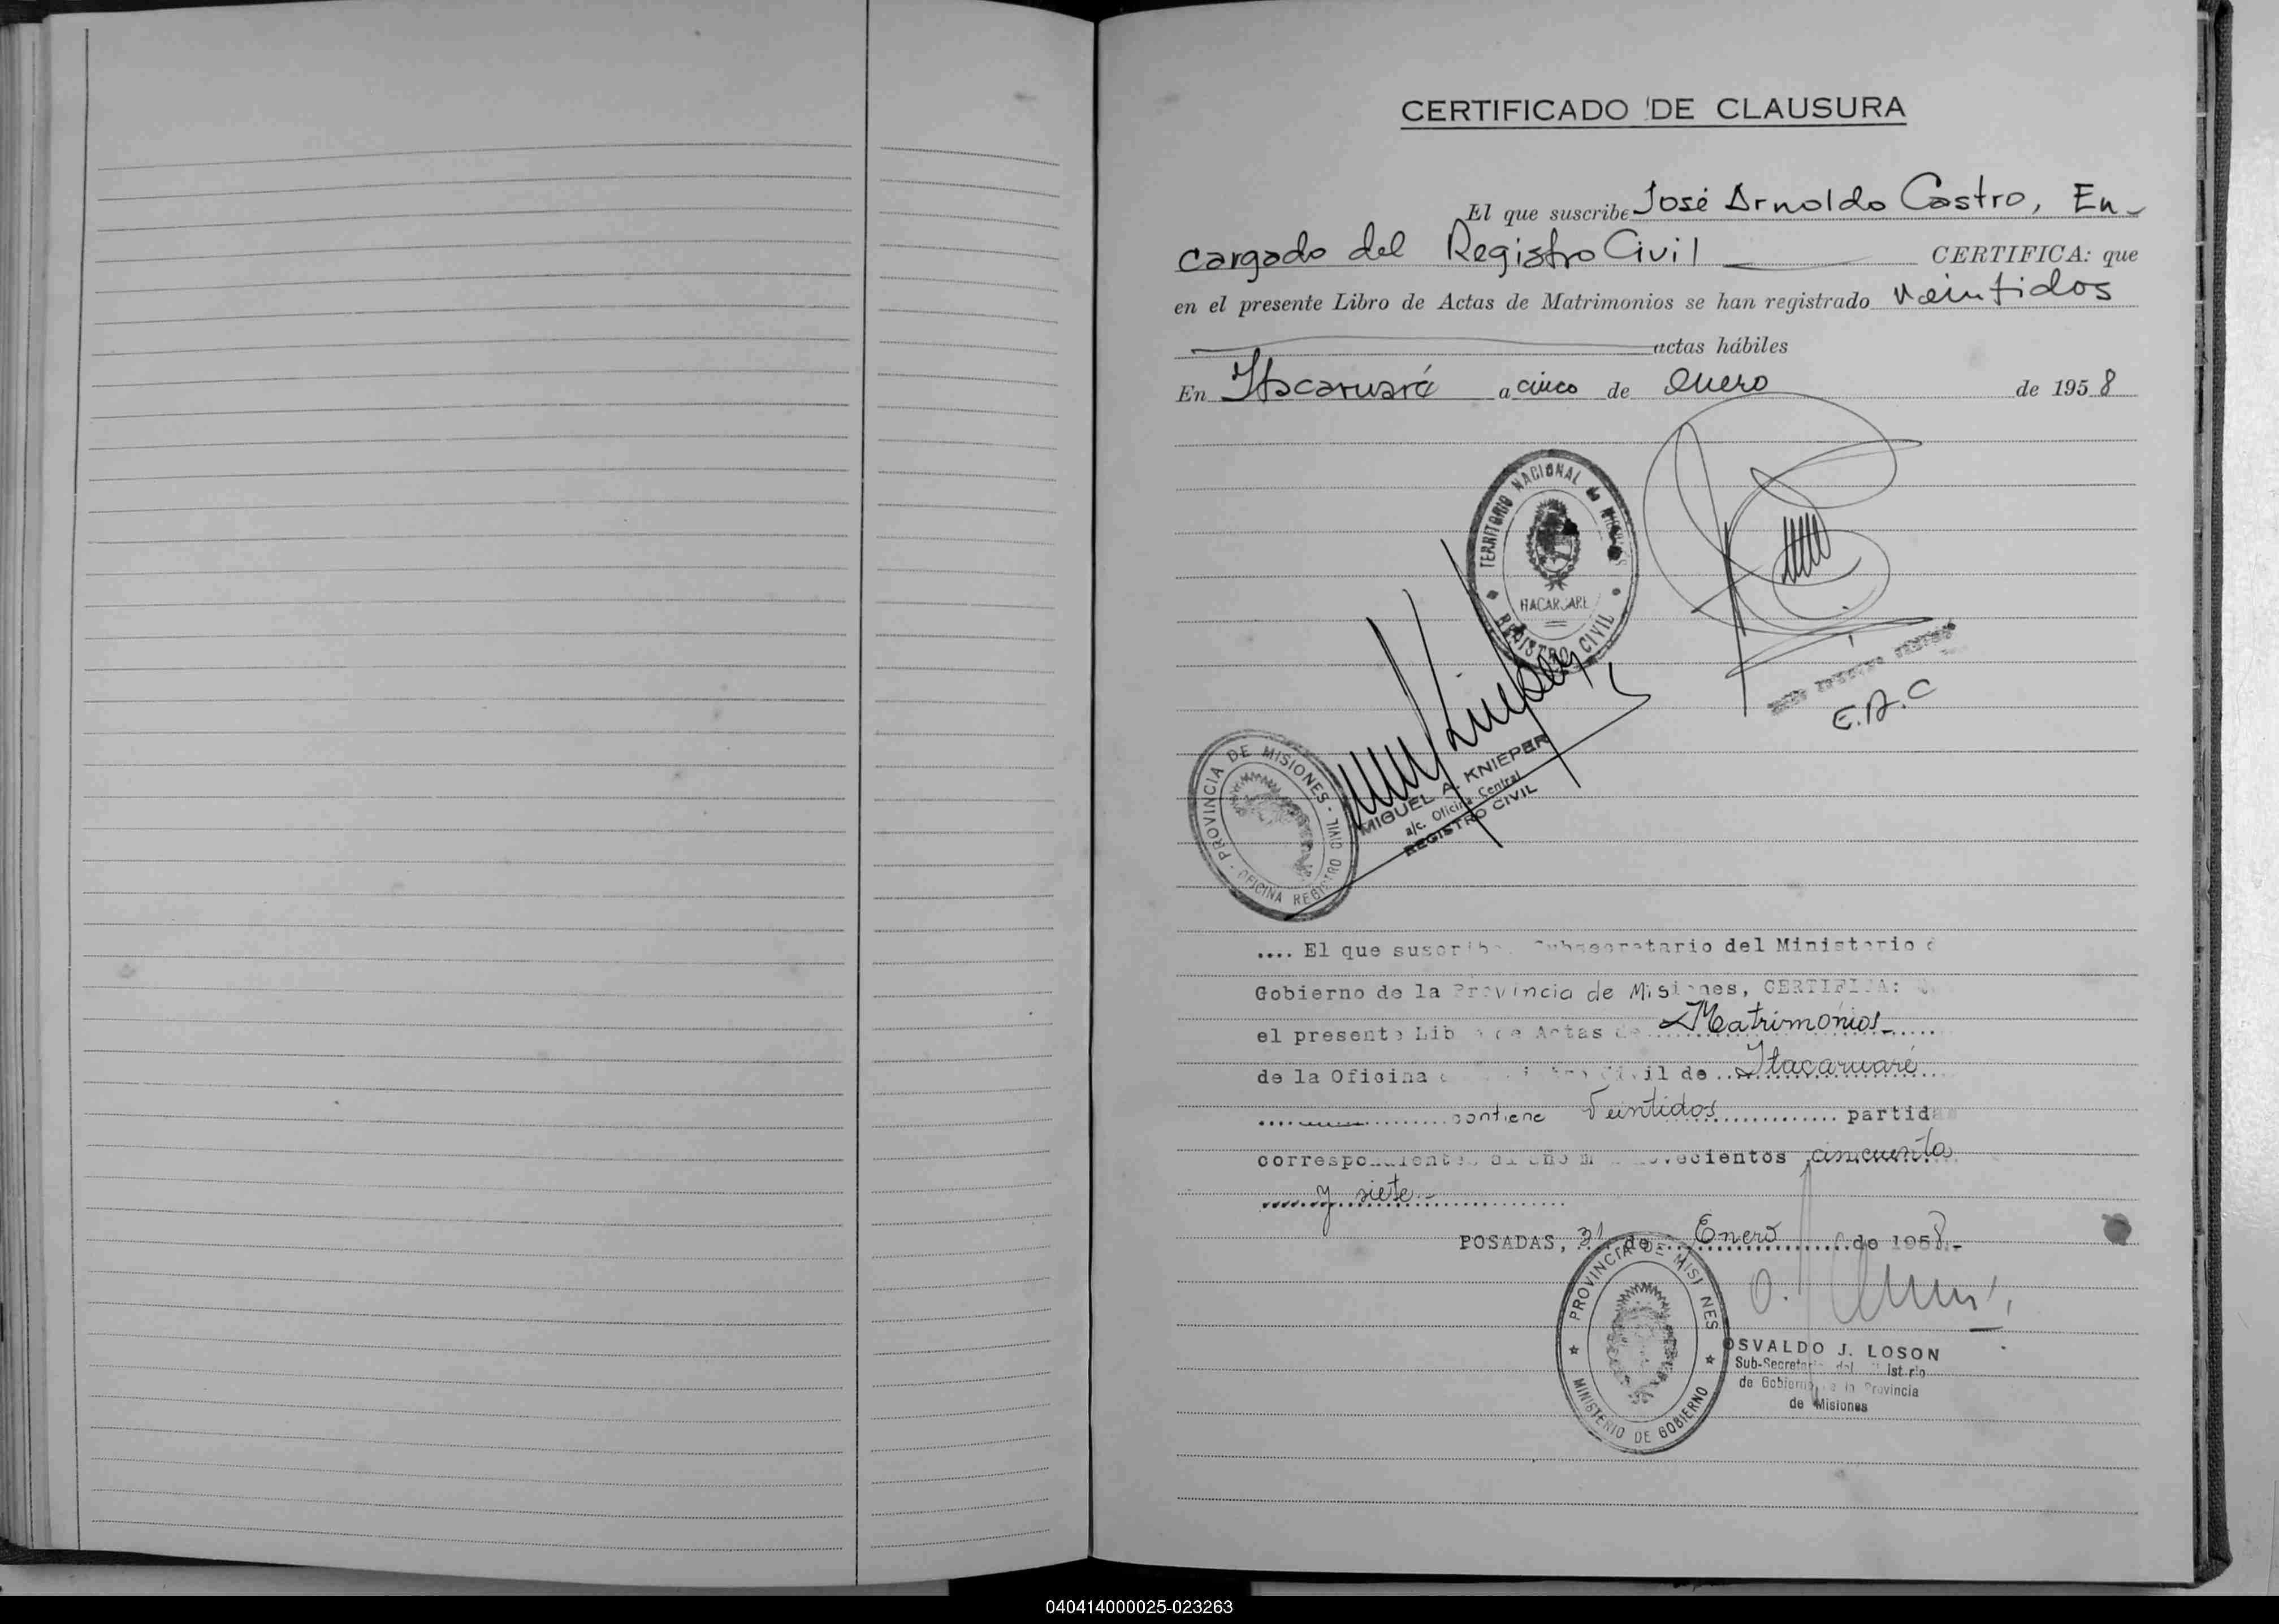 CERTIFICADO DE CLAUSURA
El que suscribe José Arnoldo Castro, En-
cargado del Registro Civil CERTIFICA: que
en el presente Libro de Actas de Matrimonios se han registrado veintidos
actas hábiles
En Itacaruaré a cinco de enero de 1958
TERRITORIO NACIONAL de MISIONES
ITACARUARE
REGISTRO CIVIL
E.R.C
PROVINCIA DE MISIONES - OFICINA REGISTRO CIVIL
MIGUEL A. KNIEPER
a/c. Oficina Central
REGISTRO CIVIL
.... El que suscribe, Subsecretario del Ministerio d
Gobierno de la Provincia de Misiones, CERTIFICA: Q
el presente Libro de Actas de Matrimonios
de la Oficina Civil de Itacaruaré
contiene Veintidos partidas
correspondientes al año mil novecientos cincuenta
y siete.-
POSADAS, 31 de Enero de 1958.-
PROVINCIA DE MISIONES
MINISTERIO DE GOBIERNO
OSVALDO J. LOSON
Sub-Secretario del Ministerio
de Gobierno de la Provincia
de Misiones
040414000025-023263